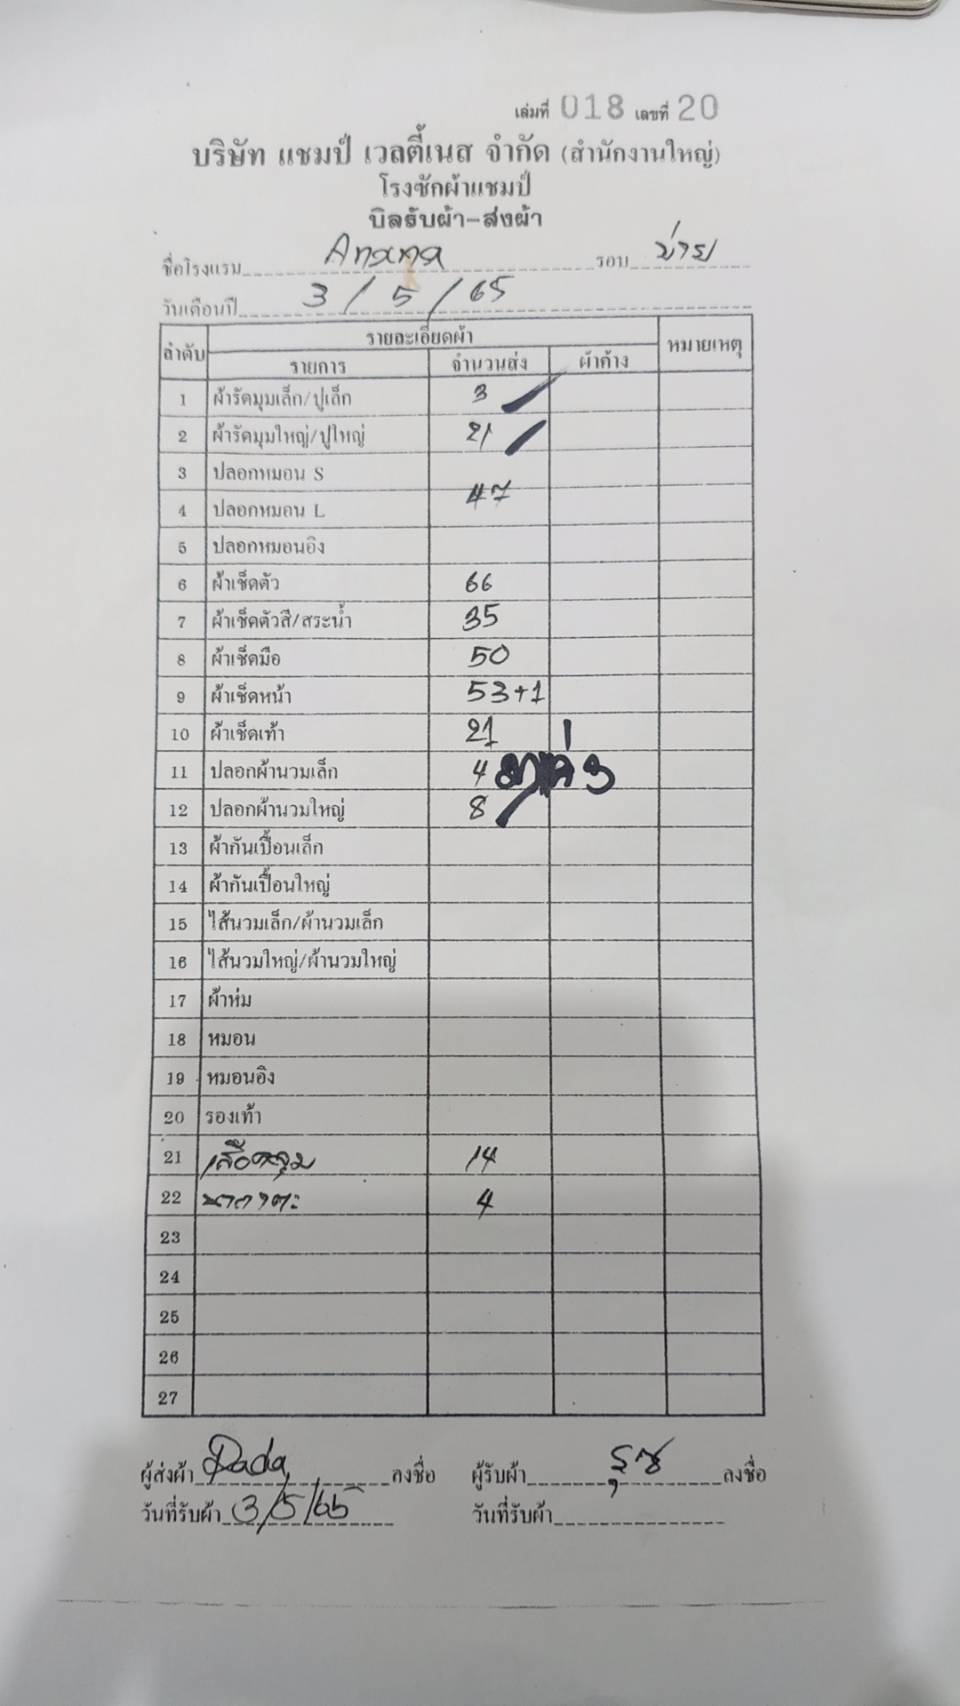 เล่มที่ 018 เลขที่ 20
บริษัท แชมป์ เวลตี้เนส จำกัด (สำนักงานใหญ่)
โรงซักผ้าแชมป์
บิลรับผ้า-ส่งผ้า
ชื่อโรงแรม Anana รอบ บ่าย
วันเดือนปี 3 / 5 / 65
ลำดับ รายละเอียดผ้า หมายเหตุ
รายการ จำนวนส่ง ผ้าค้าง
1 ผ้ารัดมุมเล็ก/ปูเล็ก 3
2 ผ้ารัดมุมใหญ่/ปูใหญ่ 21
3 ปลอกหมอน S
47
4 ปลอกหมอน L
5 ปลอกหมอนอิง
6 ผ้าเช็ดตัว 66
7 ผ้าเช็ดตัวสี/สระน้ำ 35
8 ผ้าเช็ดมือ 50
9 ผ้าเช็ดหน้า 53+1
10 ผ้าเช็ดเท้า 21
11 ปลอกผ้านวมเล็ก 4 3
12 ปลอกผ้านวมใหญ่ 8
13 ผ้ากันเปื้อนเล็ก
14 ผ้ากันเปื้อนใหญ่
15 ไส้นวมเล็ก/ผ้านวมเล็ก
16 ไส้นวมใหญ่/ผ้านวมใหญ่
17 ผ้าห่ม
18 หมอน
19 หมอนอิง
20 รองเท้า
21 เสื้อคลุม 14
22 4
23
24
25
26
27
ผู้ส่งผ้า Dada ลงชื่อ ผู้รับผ้า ลงชื่อ
วันที่รับผ้า 3/5/65 วันที่รับผ้า